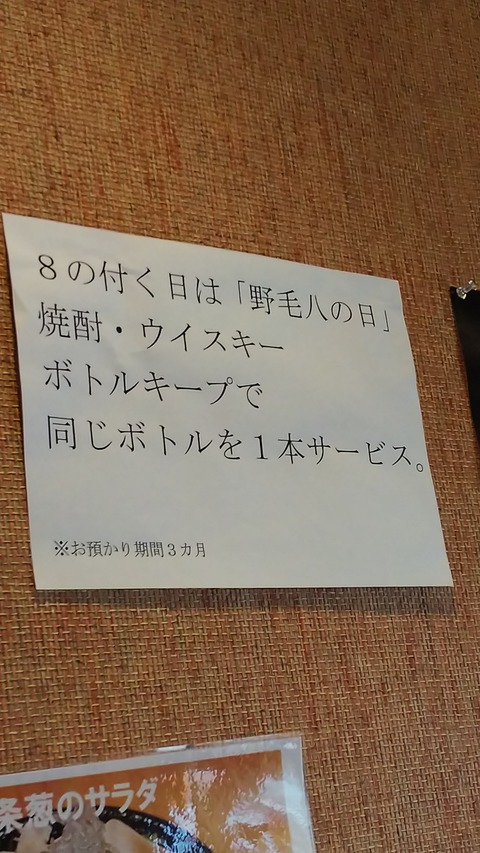 ８の付く日は「野毛八の日」
焼酎・ウイスキー
ボトルキープで
同じボトルを１本サービス。
※お預かり期間３カ月
条葱のサラダ